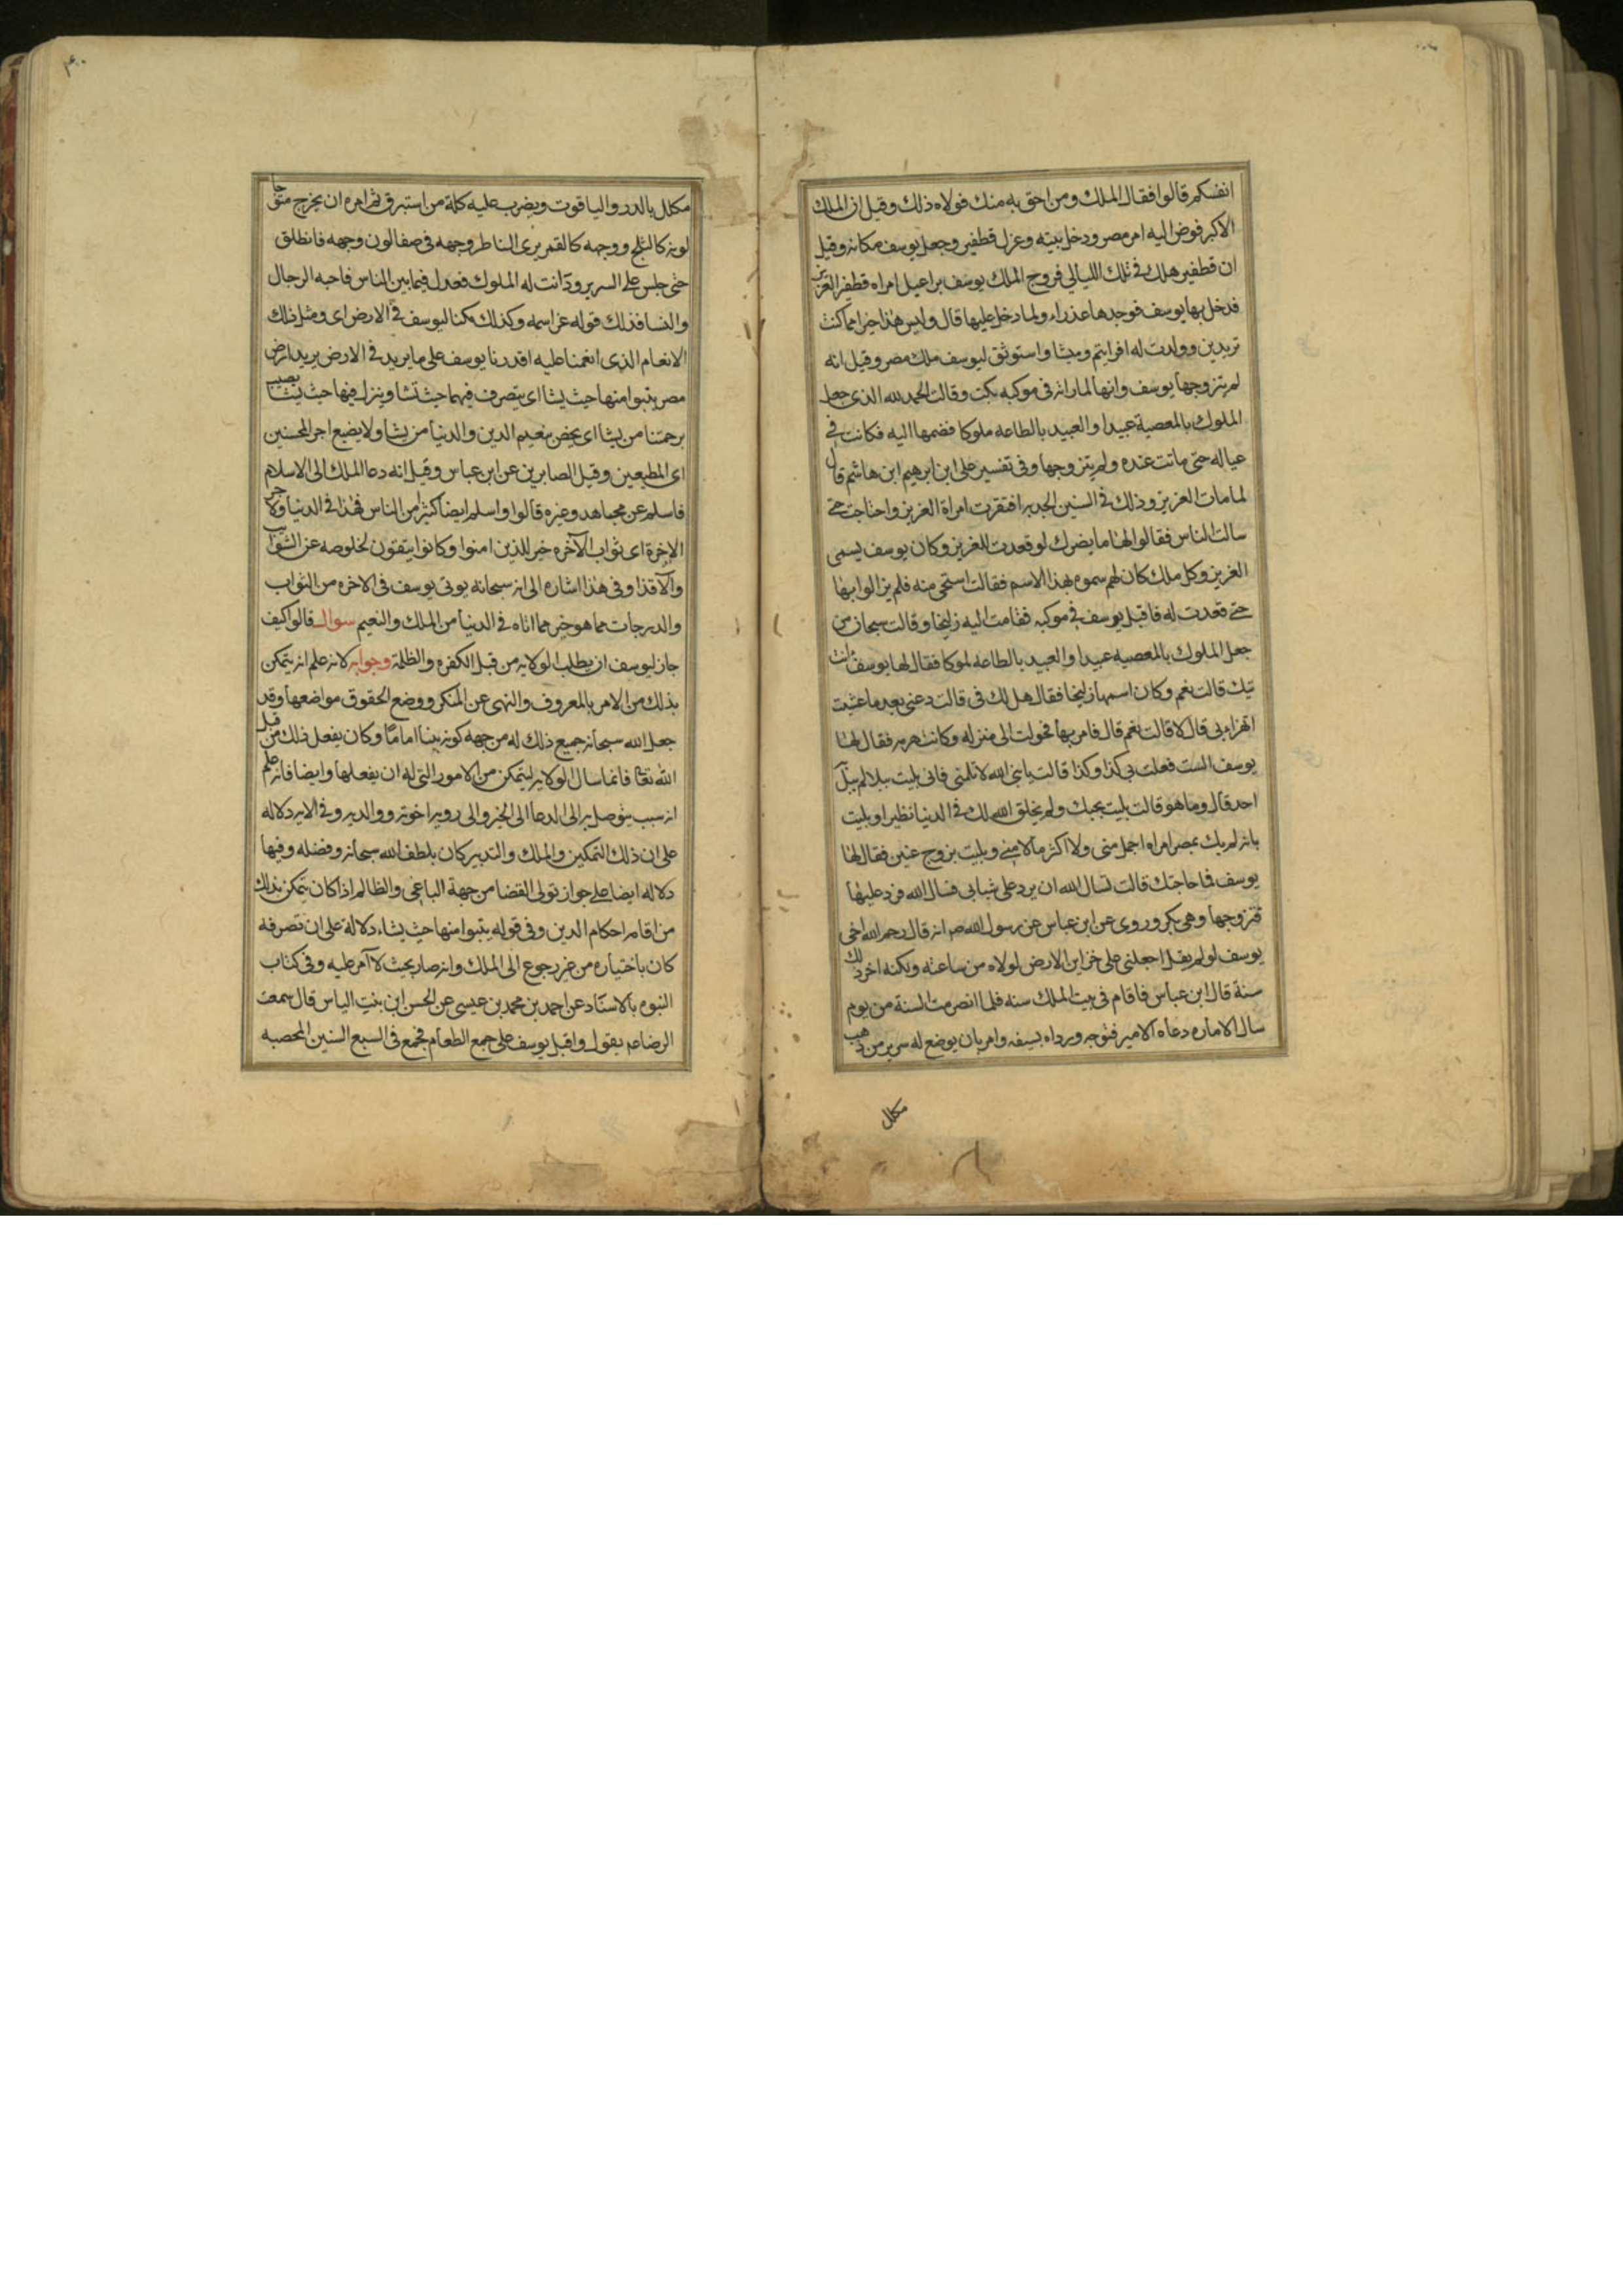 انفسكم قالوا فقال الملك ومن احق به منك فولاه ذلك وقيل ان الملك
الاكبر فوض اليه امر مصر ودخل بيته وعزل قطفير وجعل يوسف مكانه وقيل
ان قطفير هلك فى تلك الليالي فزوج الملك يوسف براعيل امراه قطفير العزيز
فدخل بها يوسف فوجدها عذراء ولما دخل عليها قال وليس هذا خيرا مما كنت
تريدين وولدت له افراييم وميشا واستوثق ليوسف ملك مصر وقيل انه
لم يتزوجها يوسف وانها لما راته فى موكبه بكت وقالت الحمد لله الذى جعل
الملوك بالمعصية عبيدا والعبيد بالطاعه ملوكا فضمها اليه فكانت فى
عياله حتى ماتت عنده ولم يتزوجها وفى تفسير على ابن ابرهيم ابن هاشم قال
لما مات العزيز وذلك فى السنين الجدبه افتقرت امراة العزيز واحتاجت حتى
سالت الناس فقالوا لها ما يضرك لو قعدت للعزيز وكان يوسف يسمى
العزيز وكل ملك كان لهم سموه بهذا الاسم فقالت استحى منه فلم يزالوا بها
حتى قعدت له فاقبل يوسف فى موكبه فقامت اليه زليخا وقالت سبحان من
جعل الملوك بالمعصيه عبيدا والعبيد بالطاعه ملوكا فقال لها يوسف انت
تيك قالت نعم وكان اسمها زليخا فقال هل لك فى قالت دعنى بعد ما عيت
اتهزا بى قال لا قالت نعم قال فامر بها فحولت الى منزله وكانت هرمه فقال لها
يوسف الست فعلت بى كذا وكذا قالت يا نبى الله لا تلمنى فانى بليت ببلا لم يبل
احد قال وما هو قالت بليت بحبك ولم يخلق الله لك فى الدنيا نظيرا وبليت
بانه لم يك بمصر امراه اجمل منى ولا اكثر مالا منى وبليت بزوج عنين فقال لها
يوسف فما حاجتك قالت تسال الله ان يرد على شبابى فسال الله فرد عليها
فتزوجها وهى بكر وروى عن ابن عباس عن رسول الله ص انه قال رحم الله اخى
يوسف لو لم يقل اجعلنى على خزاين الارض لولاه من ساعته ولكنه اخر ذلك
سنة قال ابن عباس فاقام فى بيت الملك سنه فلما انصرمت السنة من يوم
سال الاماره دعاه الامير فتوجه ورداه بسيفه وامر بان يوضع له سرير من ذهب
مكلل
مكلل بالدر والياقوت ويضرب عليه كلة من استبرق ثم امره ان يخرج متوجا
لونه كالثلج ووجهه كالقمر يرى الناظر وجهه فى صفا لون وجهه فانطلق
حتى جلس على السرير ودانت له الملوك فعدل فيما بين الناس فاحبه الرجال
والنسا فذلك قوله عز اسمه وكذلك مكنا ليوسف فى الارض اى ومثل ذلك
الانعام الذى انعمنا عليه اقدرنا يوسف على ما يريد فى الارض يريد ارض
مصر يتبوا منها حيث يشا اى يتصرف فيها حيث تشا وينزل فيها حيث يشا نصيب
برحمتنا من يشا اى يخص بنعيم الدين والدنيا من يشا ولا يضيع اجر المحسنين
اى المطيعين وقيل الصابرين عن ابن عباس وقيل انه دعا الملك الى الاسلام
فاسلم عن مجاهد وغيره قالوا واسلم ايضا كثير من الناس فهذا فى الدنيا ولاجر
الاخرة اى ثواب الآخره خير للذين امنوا وكانوا يتقون لخلوصه عن الشوايب
والاقذا وفى هذا اشاره الى انه سبحانه يوتى يوسف فى الاخره من الثواب
والدرجات مما هو خير مما اتاه فى الدنيا من الملك والنعيم سوال قالوا كيف
جاز ليوسف ان يطلب الولايه من قبل الكفره والظلمة وجوابه لانه علم انه يتمكن
بذلك من الامر بالمعروف والنهى عن المنكر ووضع الحقوق مواضعها وقد
جعل الله سبحانه جميع ذلك له من جهه كونه نبيا اماما وكان يفعل ذلك من قبل
الله تعا فانما سال الولايه ليتمكن من الامور التى له ان يفعلها وايضا فانه علم
انه سبب يتوصل به الى الدعا الى الخير والى رويه اخوته ووالديه وفى الايه دلاله
على ان ذلك التمكين والملك والتدبير كان بلطف الله سبحانه وفضله وفيها
دلاله ايضا على جواز تولى القضا من جهة الباغى والظالم اذا كان يتمكن بذلك
من اقامه احكام الدين وفى قوله يتبوا منها حيث يشاء دلالة على ان تصرفه
كان باختياره من غير رجوع الى الملك وانه صار بحيث لا آمر عليه وفى كتاب
النبوه بالاسناد عن احمد بن محمد بن عيسى عن الحسن ابن بنت الياس قال سمعت
الرضا عم يقول واقبل يوسف على جمع الطعام فجمع فى السبع السنين المخصبه